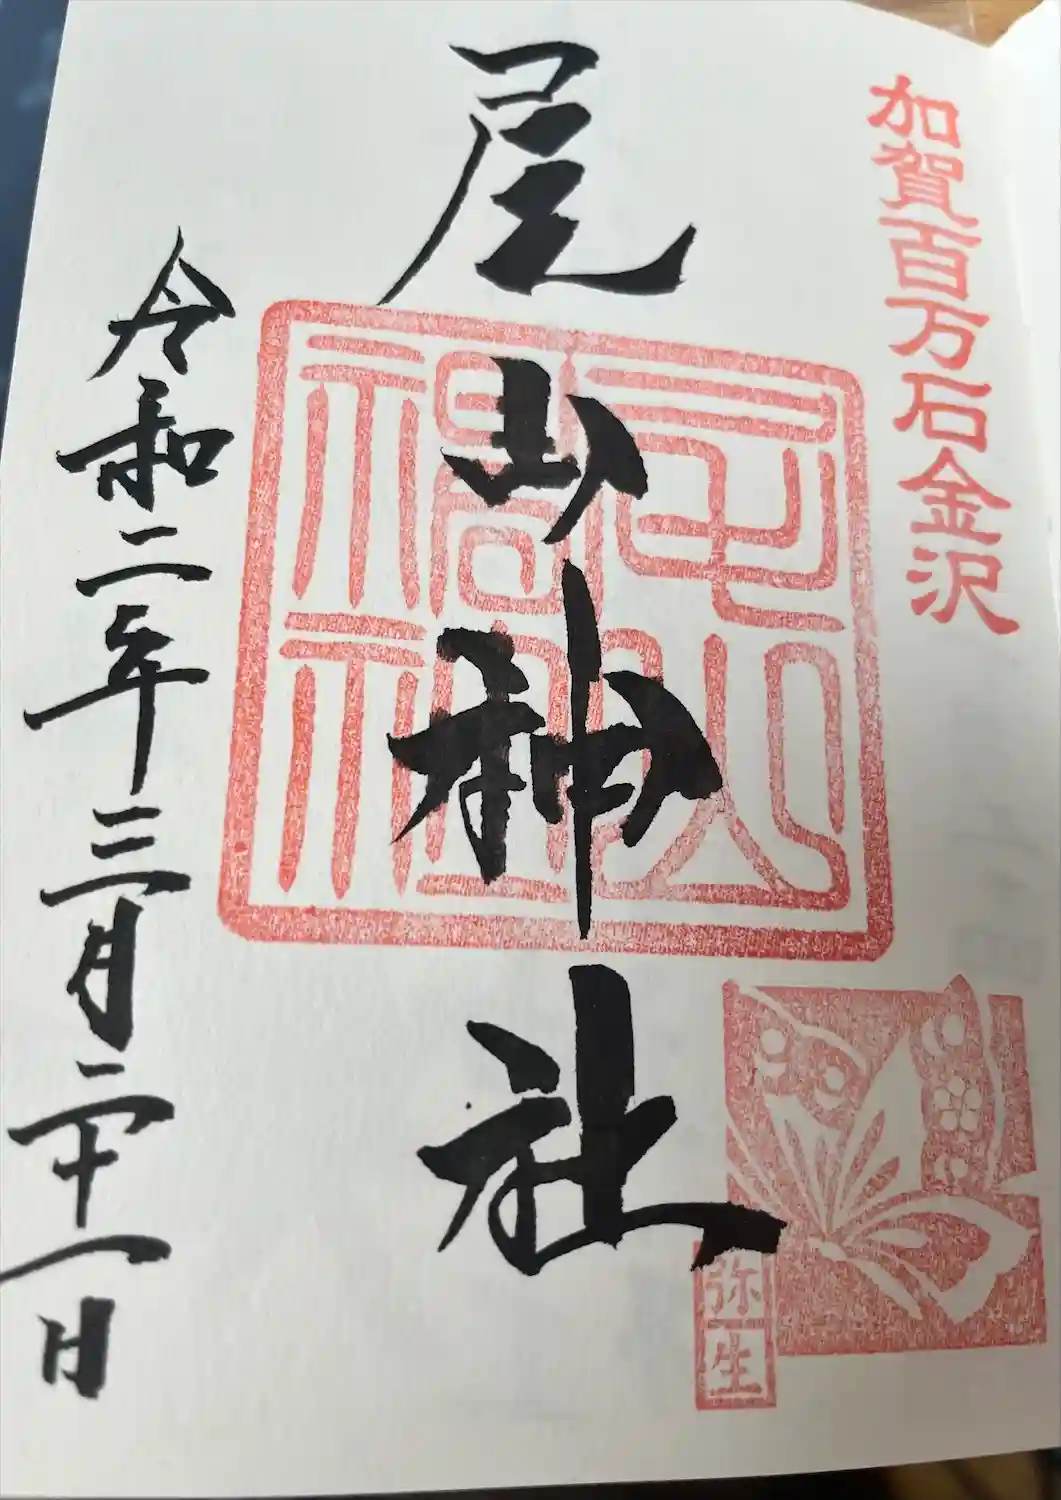 加賀百万石金沢
尾山神社
尾山神社
弥生
令和二年三月二十一日